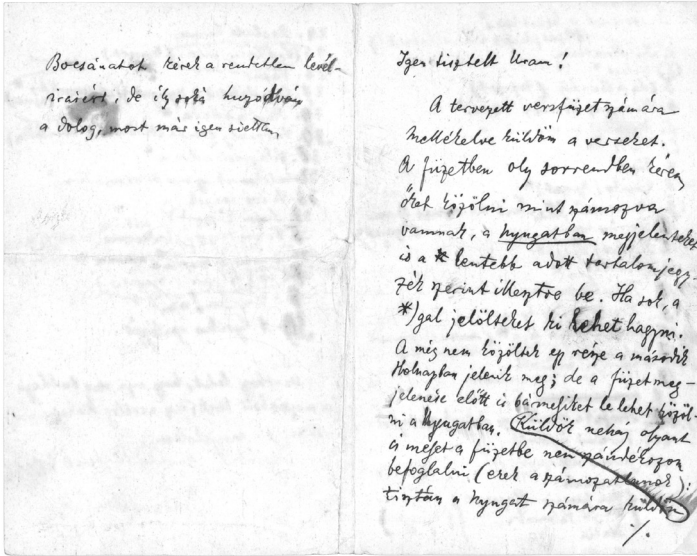 Bocsánatot kérek a rendetlen levél-
írásért, de ily soká huzódván
a dolog, most már igen siettem,
Igen tisztelt Uram!
A tervezett versfüzet számára
mellékelve küldöm a verseket.
A füzetben oly sorrendben kérem
őket közölni mint számozva
vannak, a Nyugatban megjelenteket
is a * lentebb adott tartalomjegy-
zék szerint illesztve be. Ha sok, a
*)gal jelölteket ki lehet hagyni.
A még nem közöltek egy része a második
Holnapban jelenik meg; de a füzet meg-
jelenése előtt is bármelyiket le lehet közöl-
ni a Nyugatban. Küldök nehány olyant
is melyet a füzetbe nem szándékozom
befoglalni (ezek a számozatlanok):
tisztán a Nyugat számára küldöm
./.